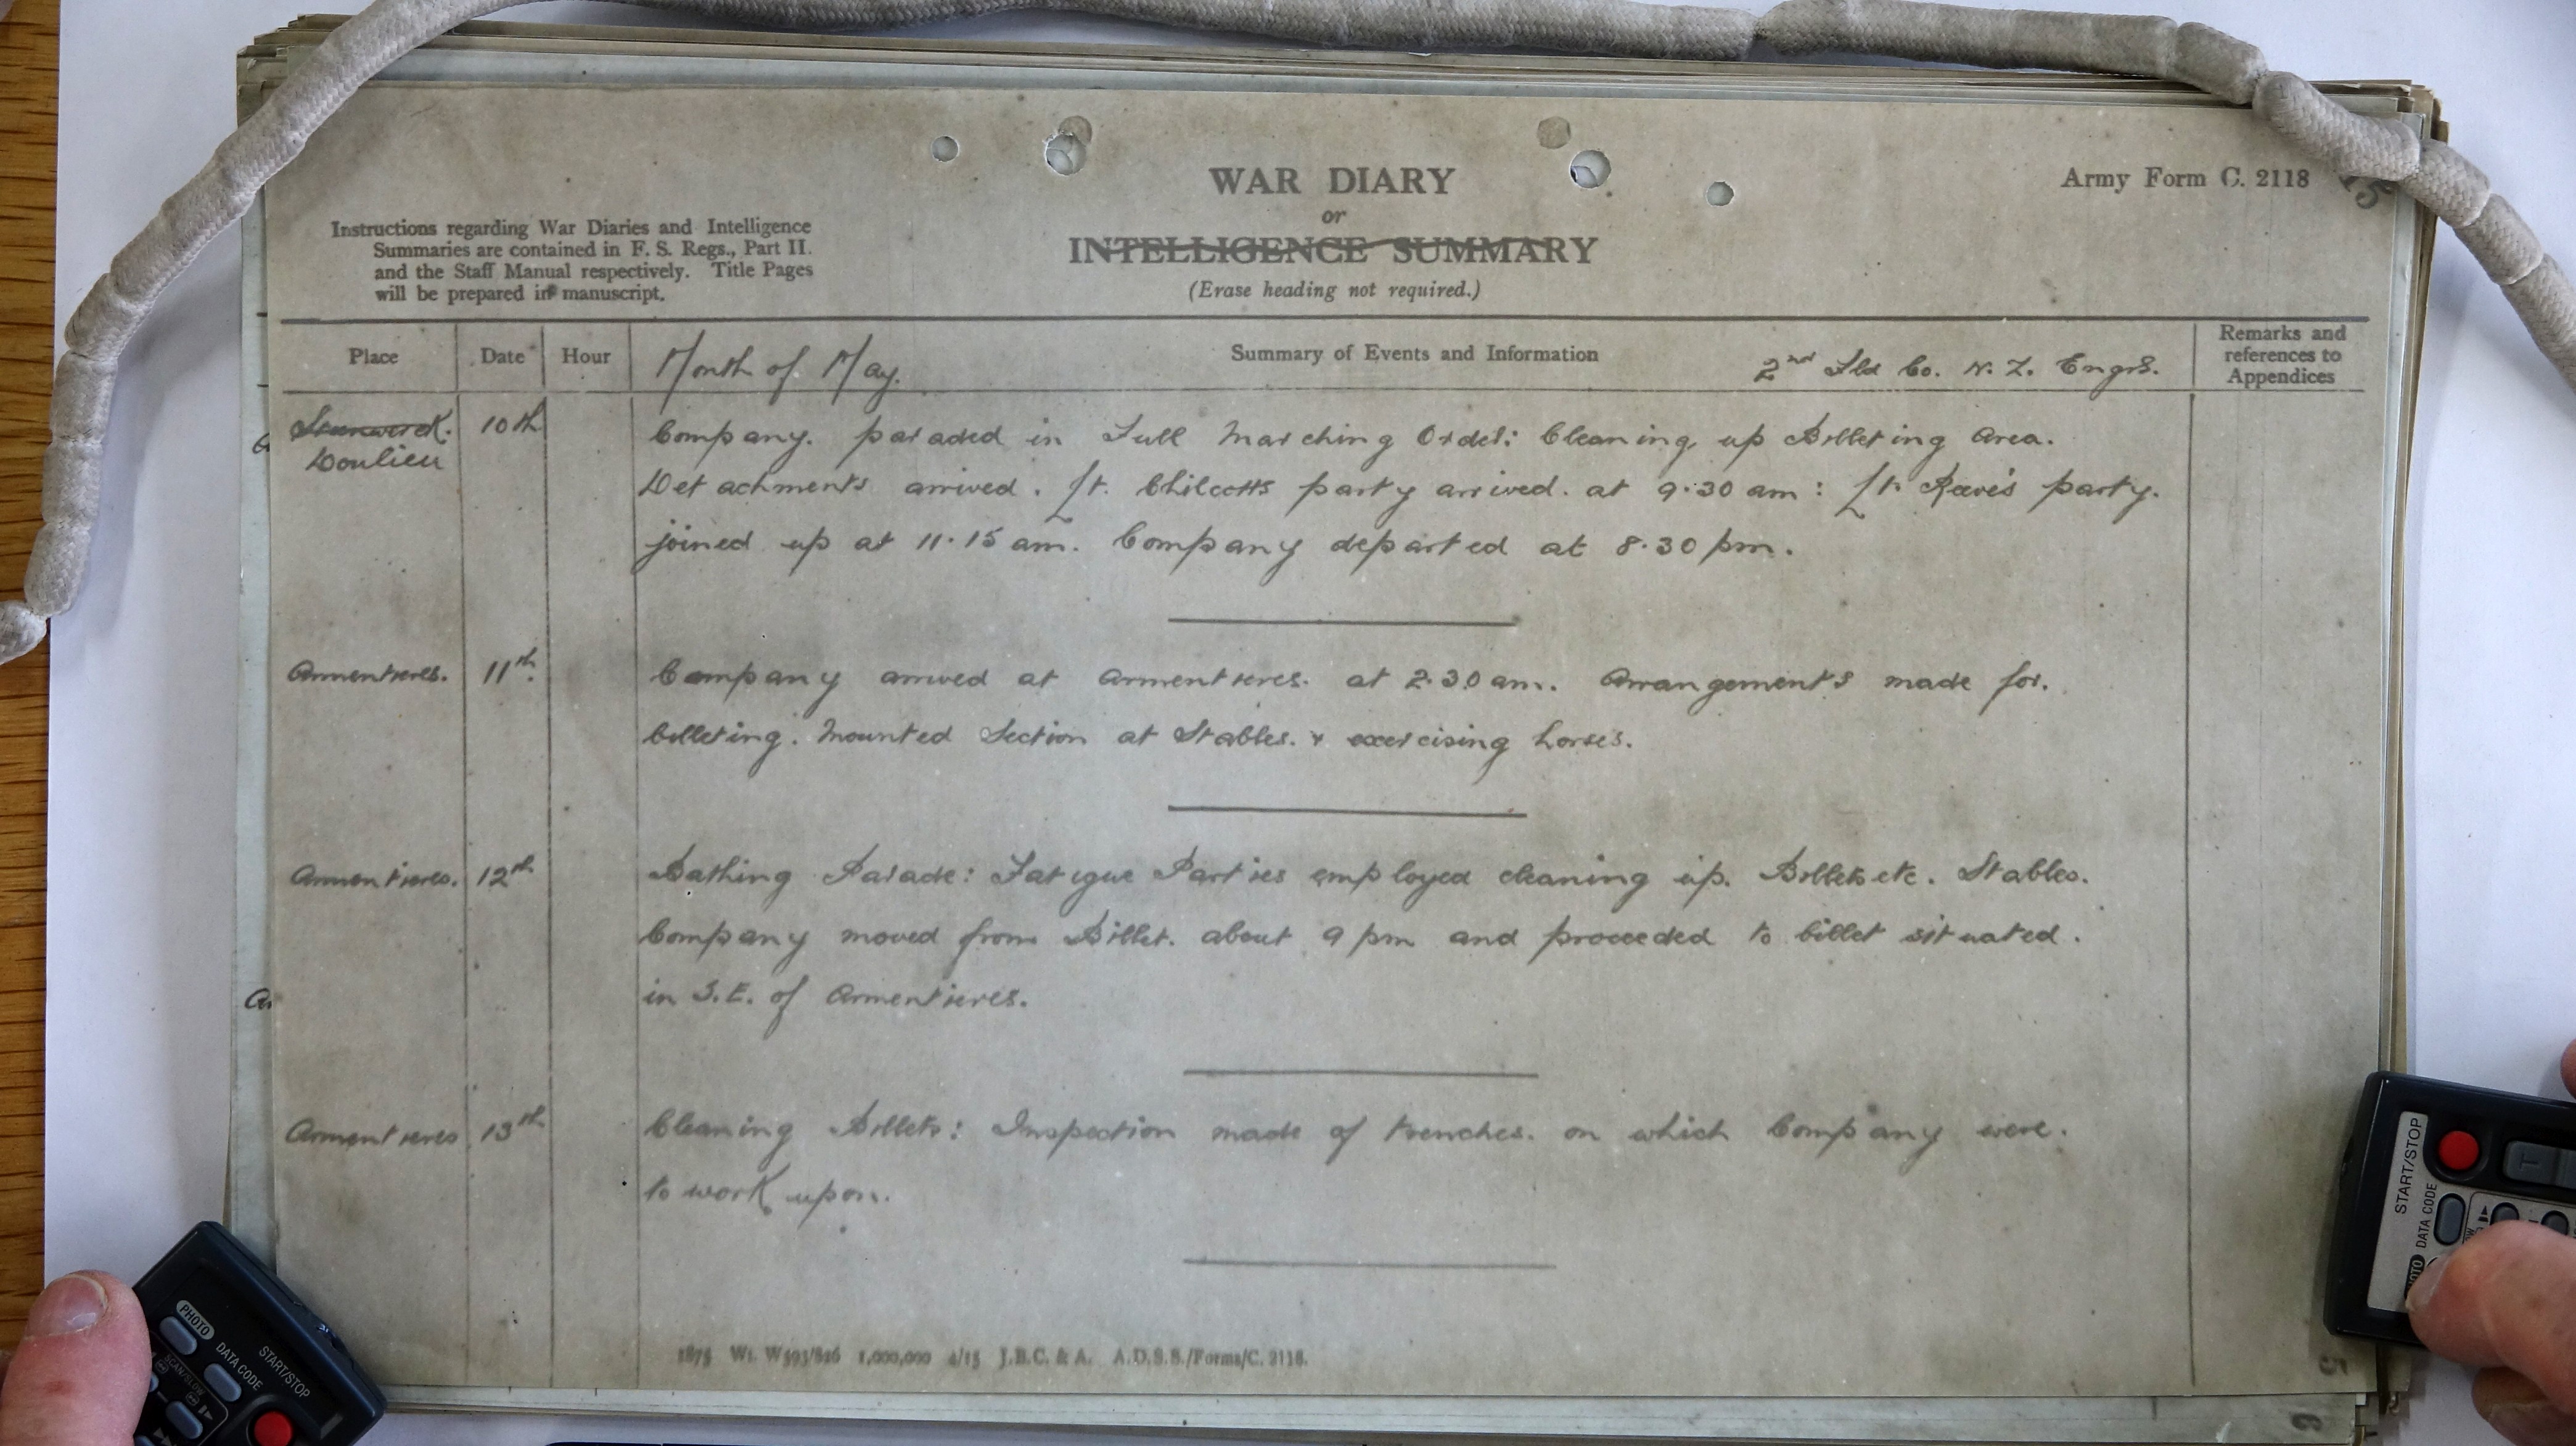 WAR DIARY
or
INTELLIGENCE SUMMARY
(Erase heading not required.)
Army Form C. 2118
15
Instructions regarding War Diaries and Intelligence
Summaries are contained in F. S. Regs., Part II.
and the Staff Manual respectively. Title Pages
will be prepared in manuscript.
Place
Date
Hour
Month of May.
Summary of Events and Information
2nd Fld Co. N. Z. Engrs.
Remarks and
references to
Appendices
Steenwerck.
Doulieu
10th
Company. paraded in Full Marching Order: Cleaning up Billeting Area.
Detachments arrived. Lt. Chilcotts party arrived. at 9.30 am: Lt. party.
joined up at 11.15 am. Company departed at 8.30 pm.
Armentieres. 11th
Company arrived at Armentieres. at 2.30 am. Arrangements made for.
billeting. Mounted Section at Stables. & exercising horses.
Armentieres. 12th
Bathing Parade: Fatigue Parties employed cleaning up. Billets etc. Stables.
Company moved from Billet. about 9 pm and proceeded to billet situated.
in S.E. of Armentieres.
Armentieres 13th
Cleaning Billets: Inspection made of trenches. on which Company were.
to work upon.
1875 Wt. W593/826 1,000,000 4/15 J.B.C. & A. A.D.S.S./Forms/C. 2118.
PHOTO
DATA CODE
START/STOP
SCAN/SLOW
START/STOP
DATA CODE
T
5
6